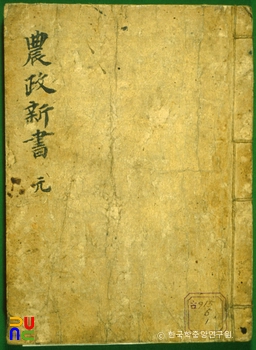 農政新書 元
© 한국학중앙연구원